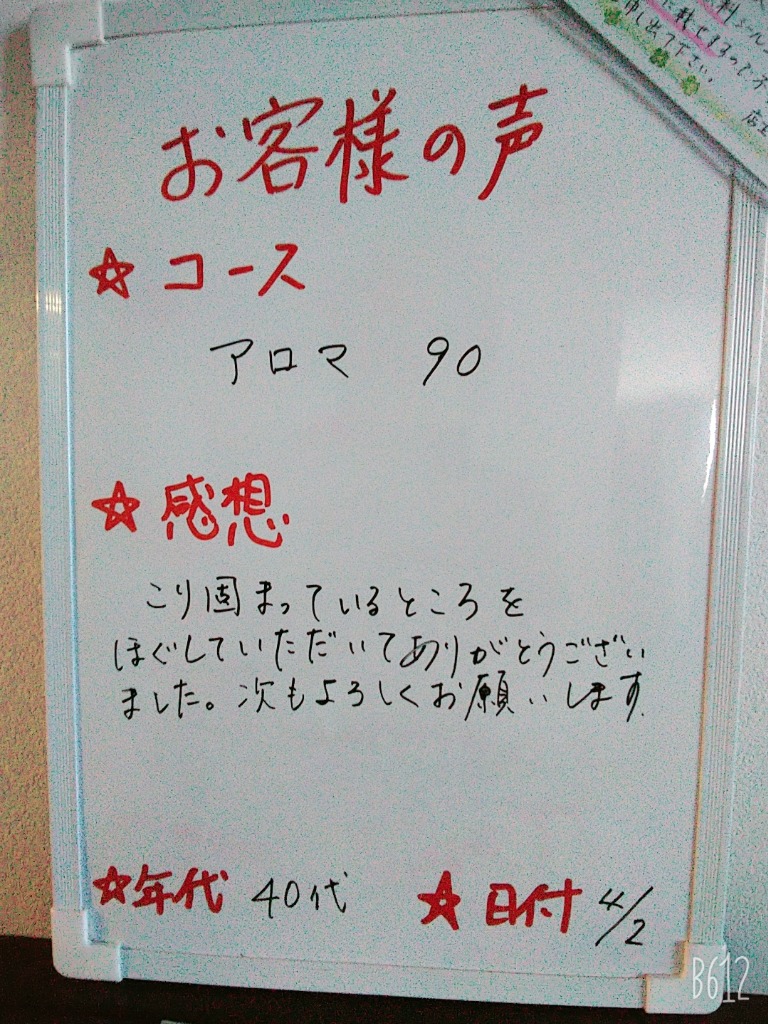 申し出下さい
お客様の声
☆コース
アロマ 90
☆感想
こり固まっているところを
ほぐしていただいてありがとうござい
ました。次もよろしくお願いします
☆年代 40代 ☆日付 4/2
B612